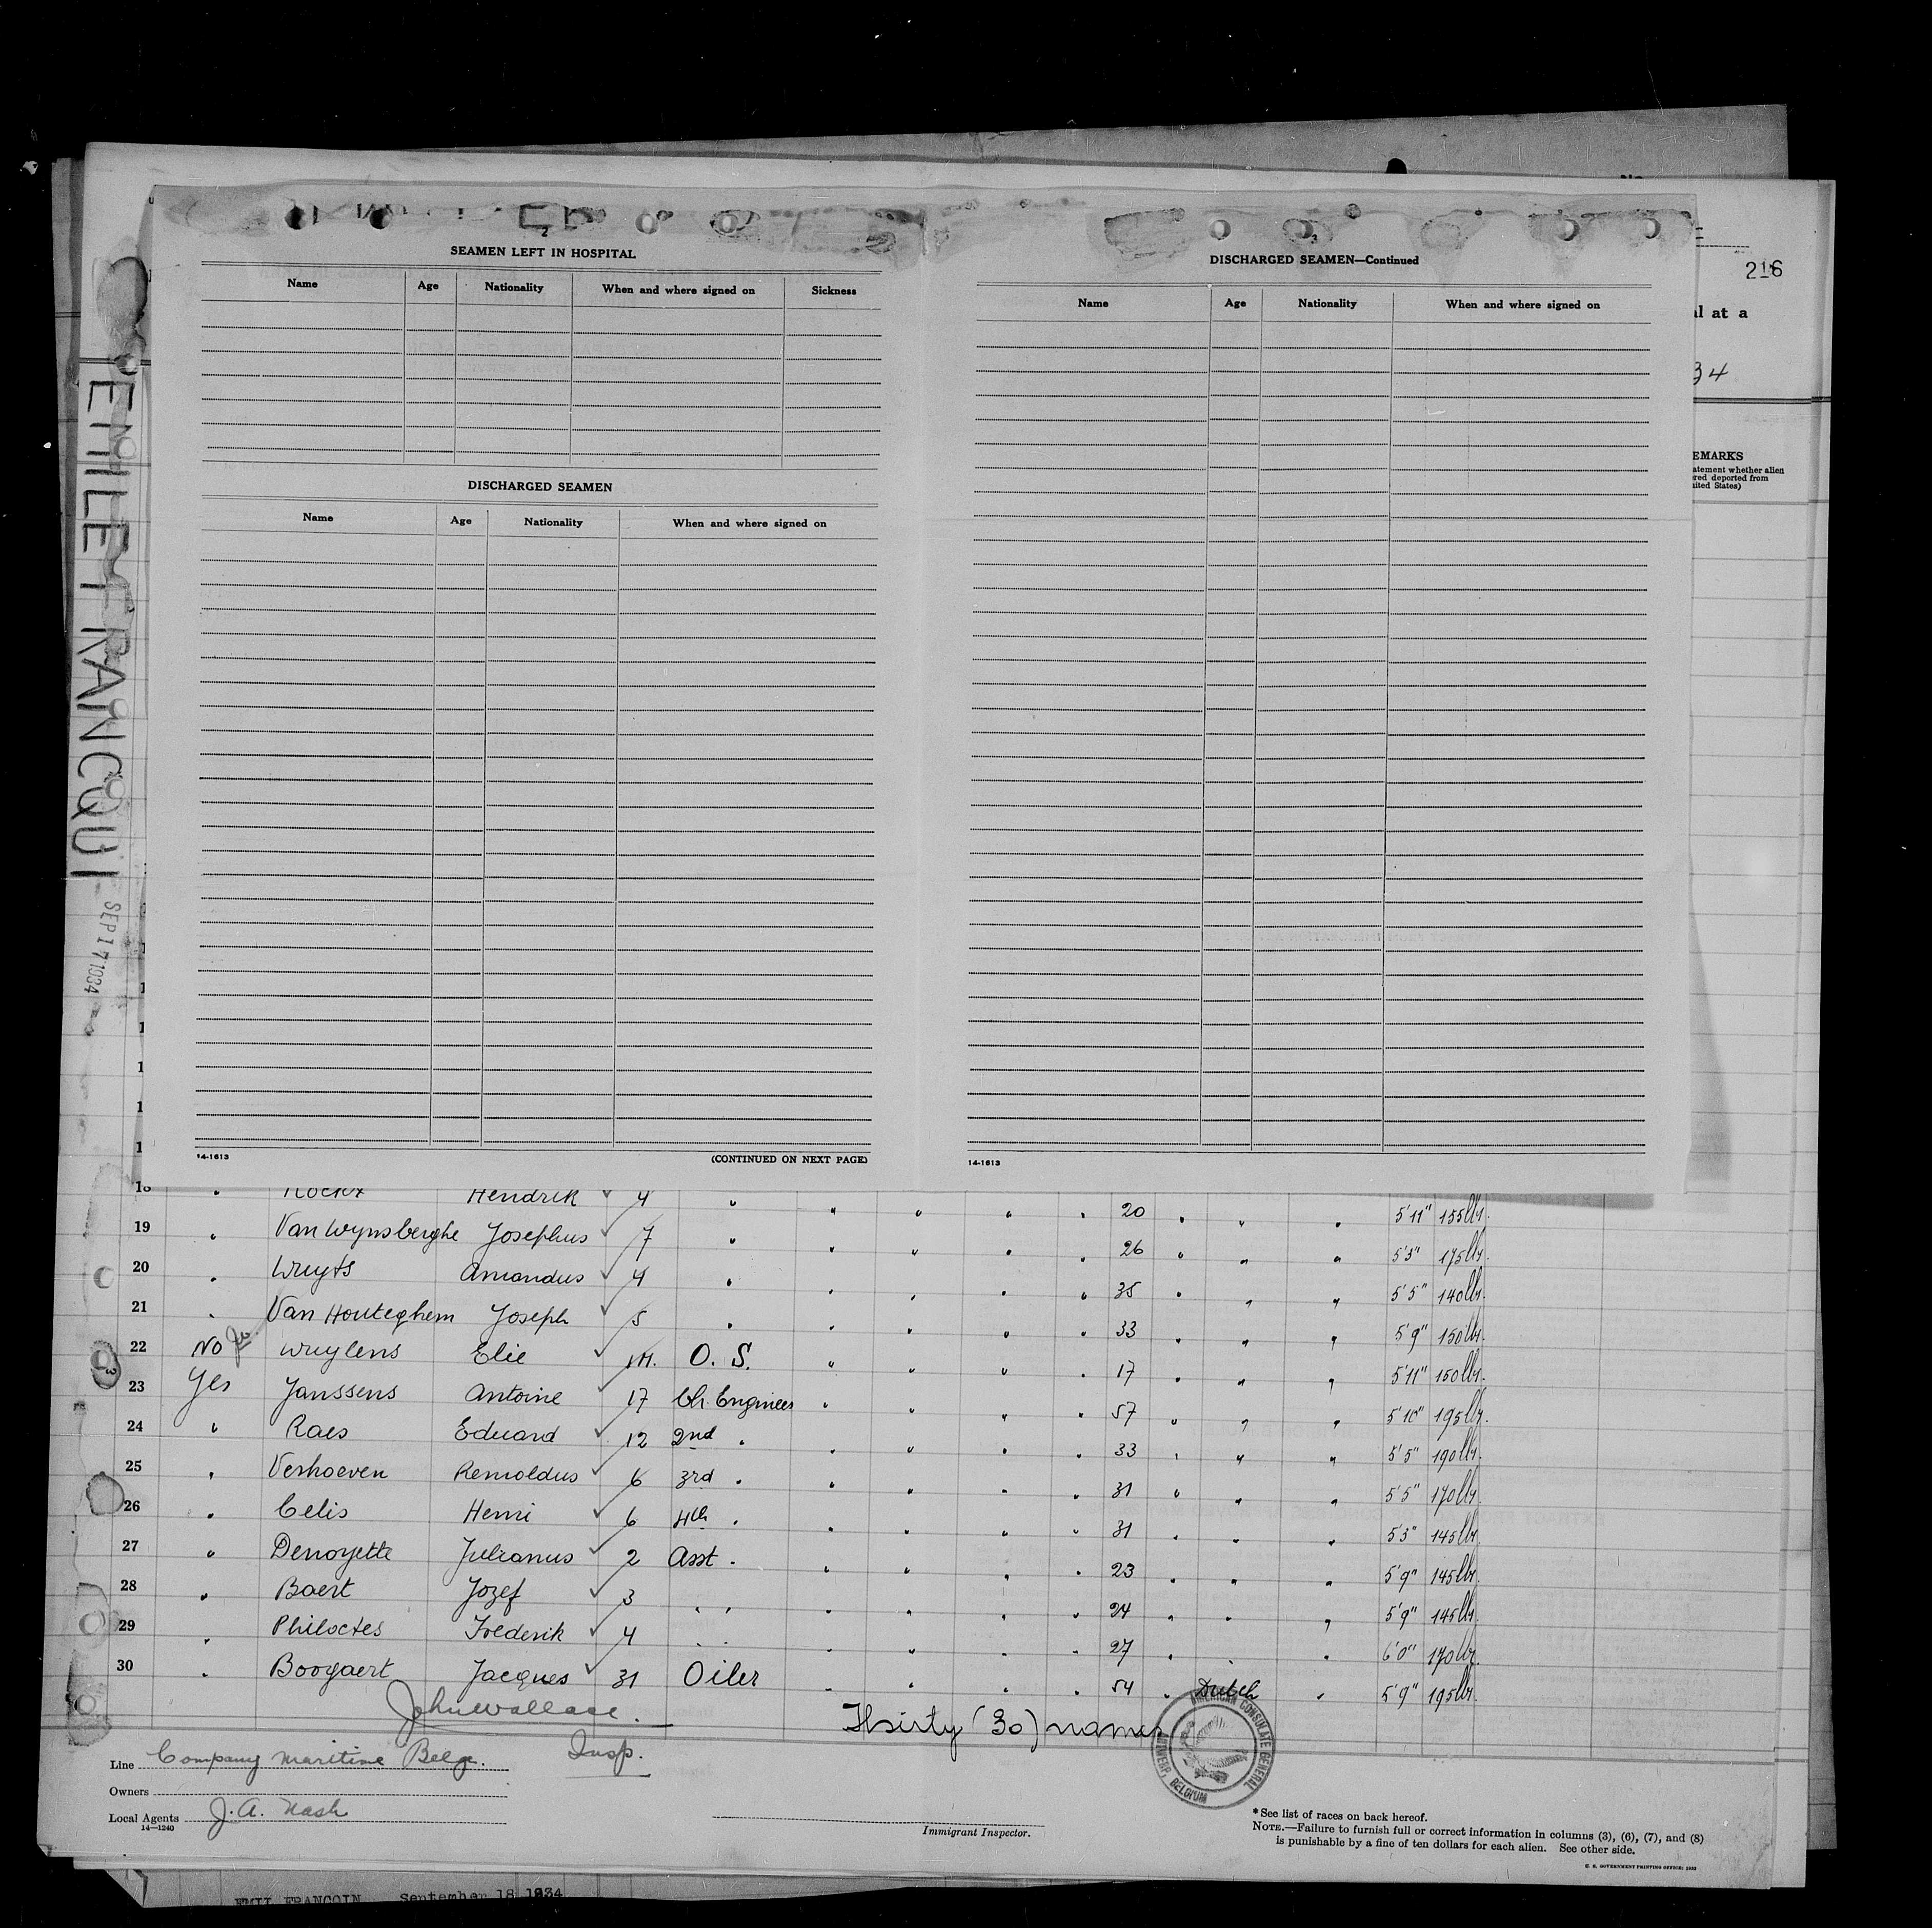 2
SEAMEN LEFT IN HOSPITAL
Name Age Nationality When and where signed on Sickness
DISCHARGED SEAMEN
Name Age Nationality When and where signed on
14-1613 (CONTINUED ON NEXT PAGE)
3
DISCHARGED SEAMEN—Continued
Name Age Nationality When and where signed on
14-1613
216
al at a
34
EMARKS
atement whether alien
ered deported from
nited States)
EMILE FRANCQUI
SEP 17 1934
18 " Hendrik ✓ 4 " " " " " 20 " " " 5'11" 155 lbs.
19 " Van Wynsberghe Josephus ✓ 7 " " " " " 26 " " " 5'3" 175 lbs.
20 " Wuyts Amandus ✓ 4 " " " " " 35 " " " 5'5" 140 lbs.
21 " Van Houteghem Joseph ✓ 5 " " " " " 33 " " " 5'9" 150 lbs.
22 No Wuylens Elie ✓ 1M. O. S. " " " " 17 " " " 5'11" 150 lbs.
23 Yes Janssens Antoine ✓ 17 Ch. Engineer " " " " 57 " " " 5'10" 195 lbs.
24 " Raes Eduard ✓ 12 2nd " " " " " 33 " " " 5'5" 190 lbs.
25 " Verhoeven Remoldus ✓ 6 3rd " " " " " 31 " " " 5'5" 170 lbs.
26 " Celis Henri ✓ 6 4th " " " " " 31 " " " 5'3" 145 lbs.
27 " Denoyette Julianus ✓ 2 Asst " " " " " 23 " " " 5'9" 145 lbs.
28 " Baert Jozef ✓ 3 " " " " " " 24 " " " 5'9" 145 lbs.
29 " Philoctes Frederik ✓ 4 " " " " " " 27 " " " 6'0" 170 lbs.
30 " Boogaert Jacques ✓ 31 Oiler " " " " 54 " Dutch " 5'9" 195 lbs.
John Wallace.
Insp.
Thirty (30) names
AMERICAN CONSULATE GENERAL
ANTWERP, BELGIUM
Line Company Maritime Belge.
Owners
Local Agents J. A. Nash
14—1240
Immigrant Inspector.
*See list of races on back hereof.
NOTE.—Failure to furnish full or correct information in columns (3), (6), (7), and (8)
is punishable by a fine of ten dollars for each alien. See other side.
U. S. GOVERNMENT PRINTING OFFICE: 1932
EMIL FRANCQIN September 18 1934